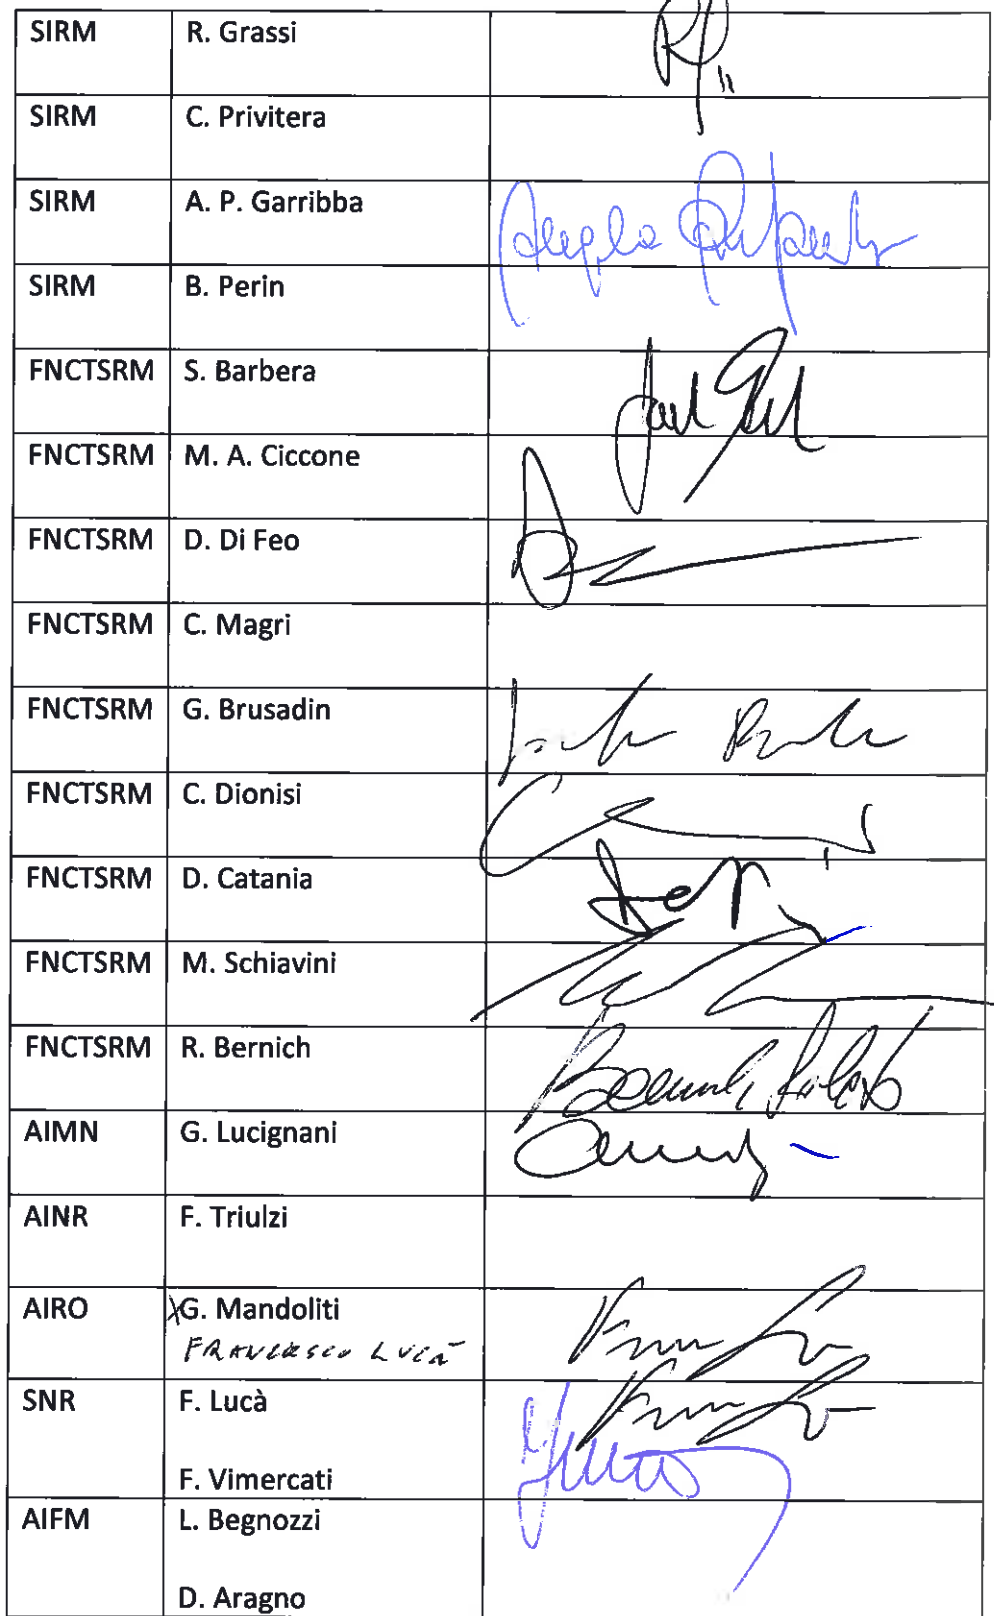 SIRM R. Grassi
SIRM C. Privitera
SIRM A. P. Garribba
SIRM B. Perin
FNCTSRM S. Barbera
FNCTSRM M. A. Ciccone
FNCTSRM D. Di Feo
FNCTSRM C. Magri
FNCTSRM G. Brusadin
FNCTSRM C. Dionisi
FNCTSRM D. Catania
FNCTSRM M. Schiavini
FNCTSRM R. Bernich
AIMN G. Lucignani
AINR F. Triulzi
AIRO G. Mandoliti
FRANCESCO LUCÀ
SNR F. Lucà
F. Vimercati
AIFM L. Begnozzi
D. Aragno